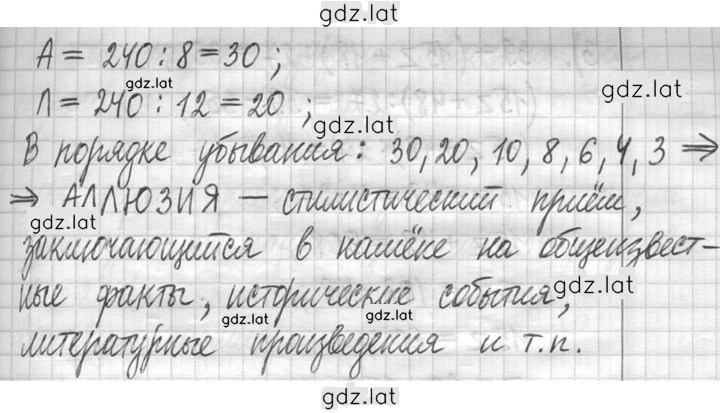 gdz.lat
А = 240 : 8 = 30 ;
gdz.lat
gdz.lat
Л = 240 : 12 = 20 ;
gdz.lat
В порядке убывания: 30, 20, 10, 8, 6, 4, 3 ⇒
⇒ АЛЛЮЗИЯ — стилистический приём,
gdz.lat
заключающийся в намёке на общеизвест-
gdz.lat
ные факты, исторические события,
gdz.lat
gdz.lat
литературные произведения и т.п.
gdz.lat